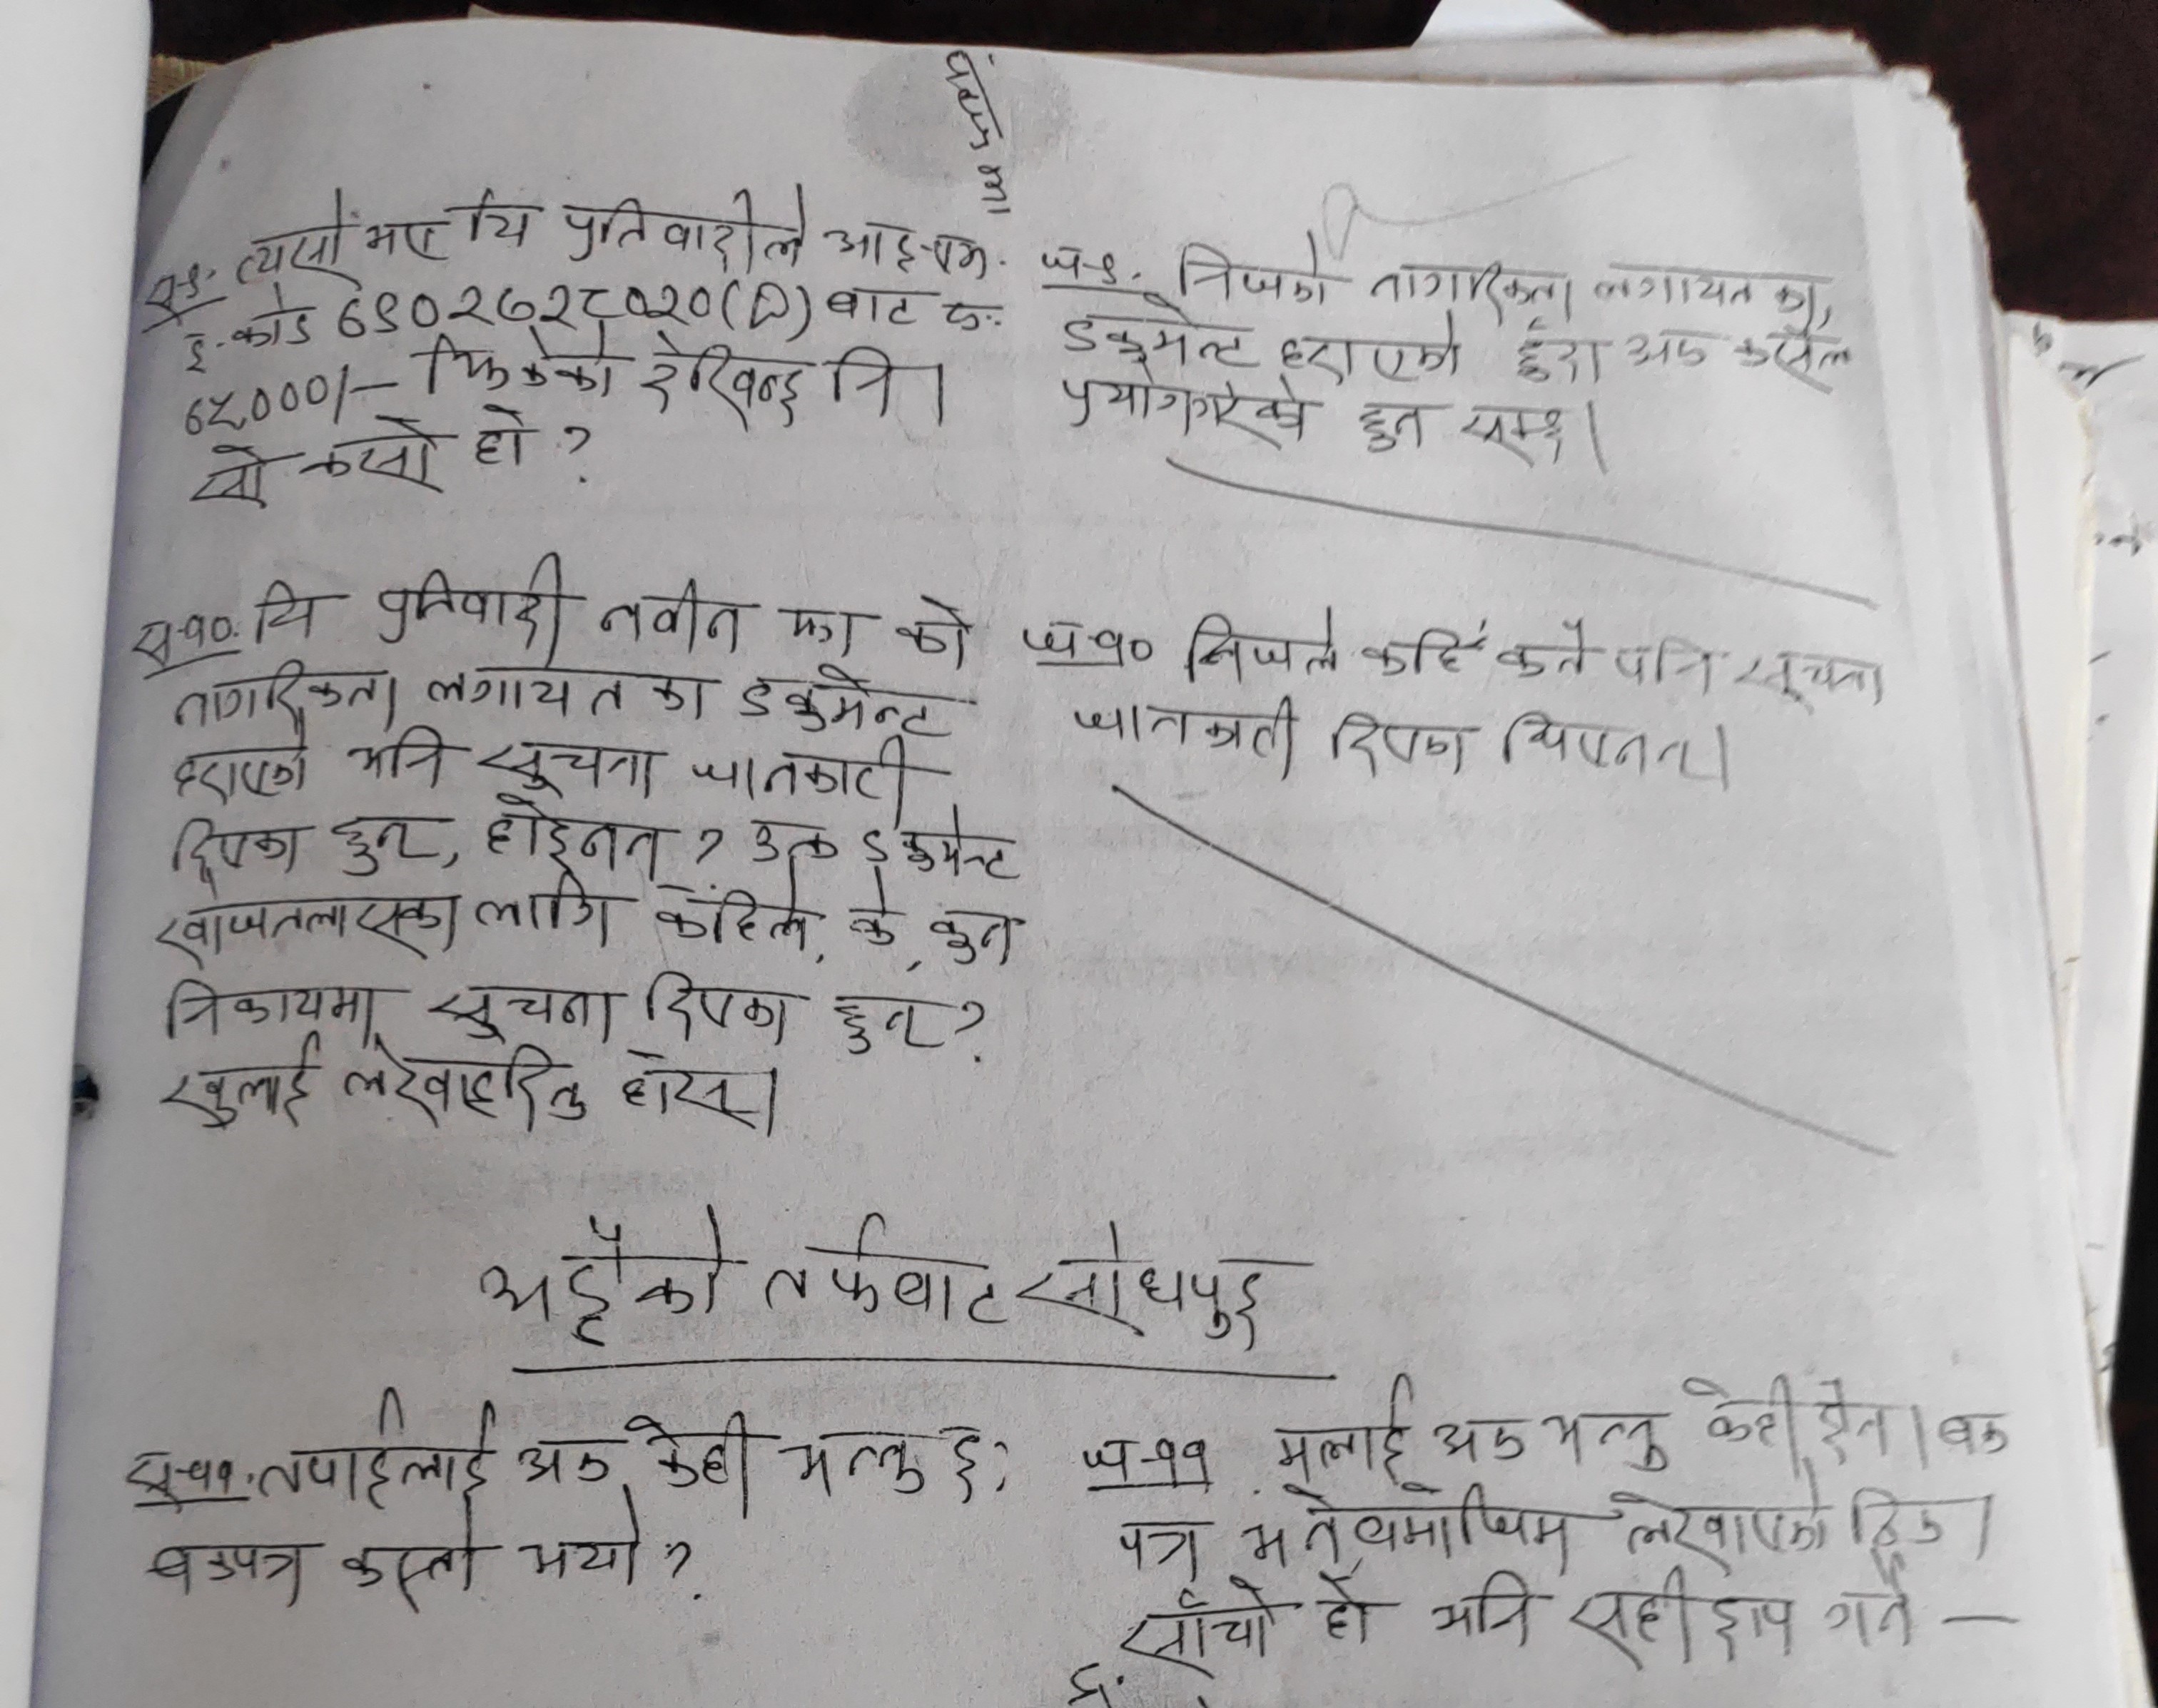 स.९. त्यसो भए यि प्रतिवादीले आइ.एम.
ई. कोड ६९०२७२८०२०(D) बाट रू.
६५,०००/- झिकेको देखिन्छ नि।
सो कसो हो ?
ज.९. निजको नागरिकता लगायतका,
डकुमेन्ट हराएको हुँदा अरू कसैले
प्रयोग गरेको हुन सक्छ।
स.१०. यि प्रतिवादी नवीन झा को
नागरिकता लगायतका डकुमेन्ट
हराएको भनि सूचना जानकारी
दिएका हुन्, होइनन् ? उक्त डकुमेन्ट
खोजतलासका लागि कहिले, के, कुन
निकायमा सूचना दिएका हुन् ?
खुलाई लेखाइदिनु होस्।
ज.१० निजले कहिँ कतै पनि सूचना
जानकारी दिएका थिएनन्।
अड्डाको तर्फबाट सोधपुछ
स.११. तपाईलाई अरू केही भन्नु छ;
बकपत्र कस्तो भयो ?
ज.११ मलाई अरू भन्नु केही छैन। बक
पत्र भने बमोजिम लेखाएको ठिक।
साँचो हो भनि सही छाप गर्ने —